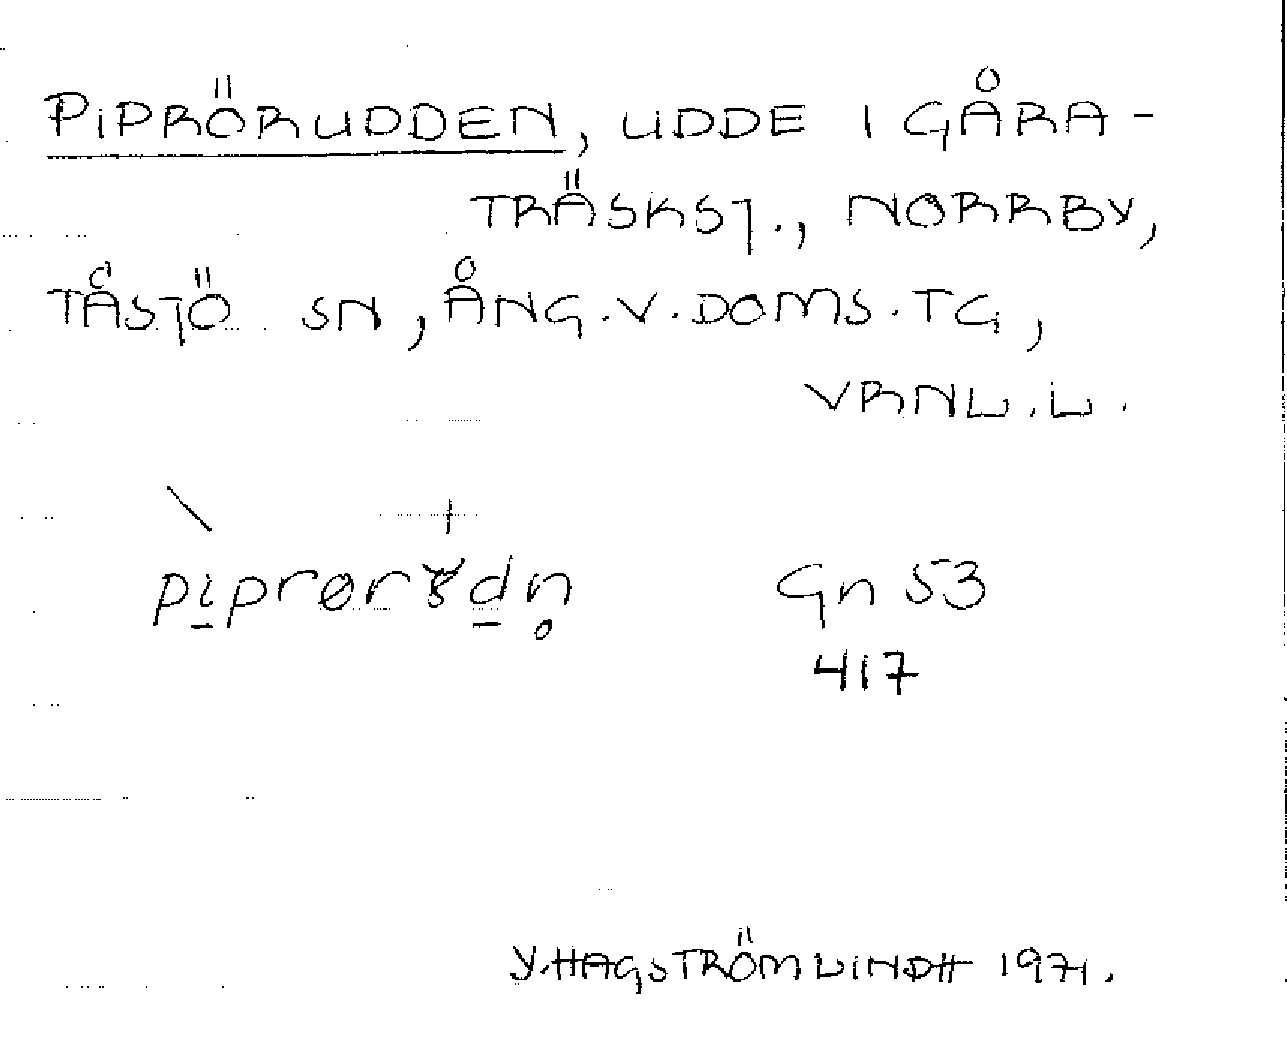 PIPRÖRUDDEN, UDDE I GÅRA-
TRÄSKSJ., NORRBY,
TÅSJÖ SN, ÅNG.V.DOMS.TG,
VRNL.L.
Gn 53
417
Y.HAGSTRÖMLINDH 1971.